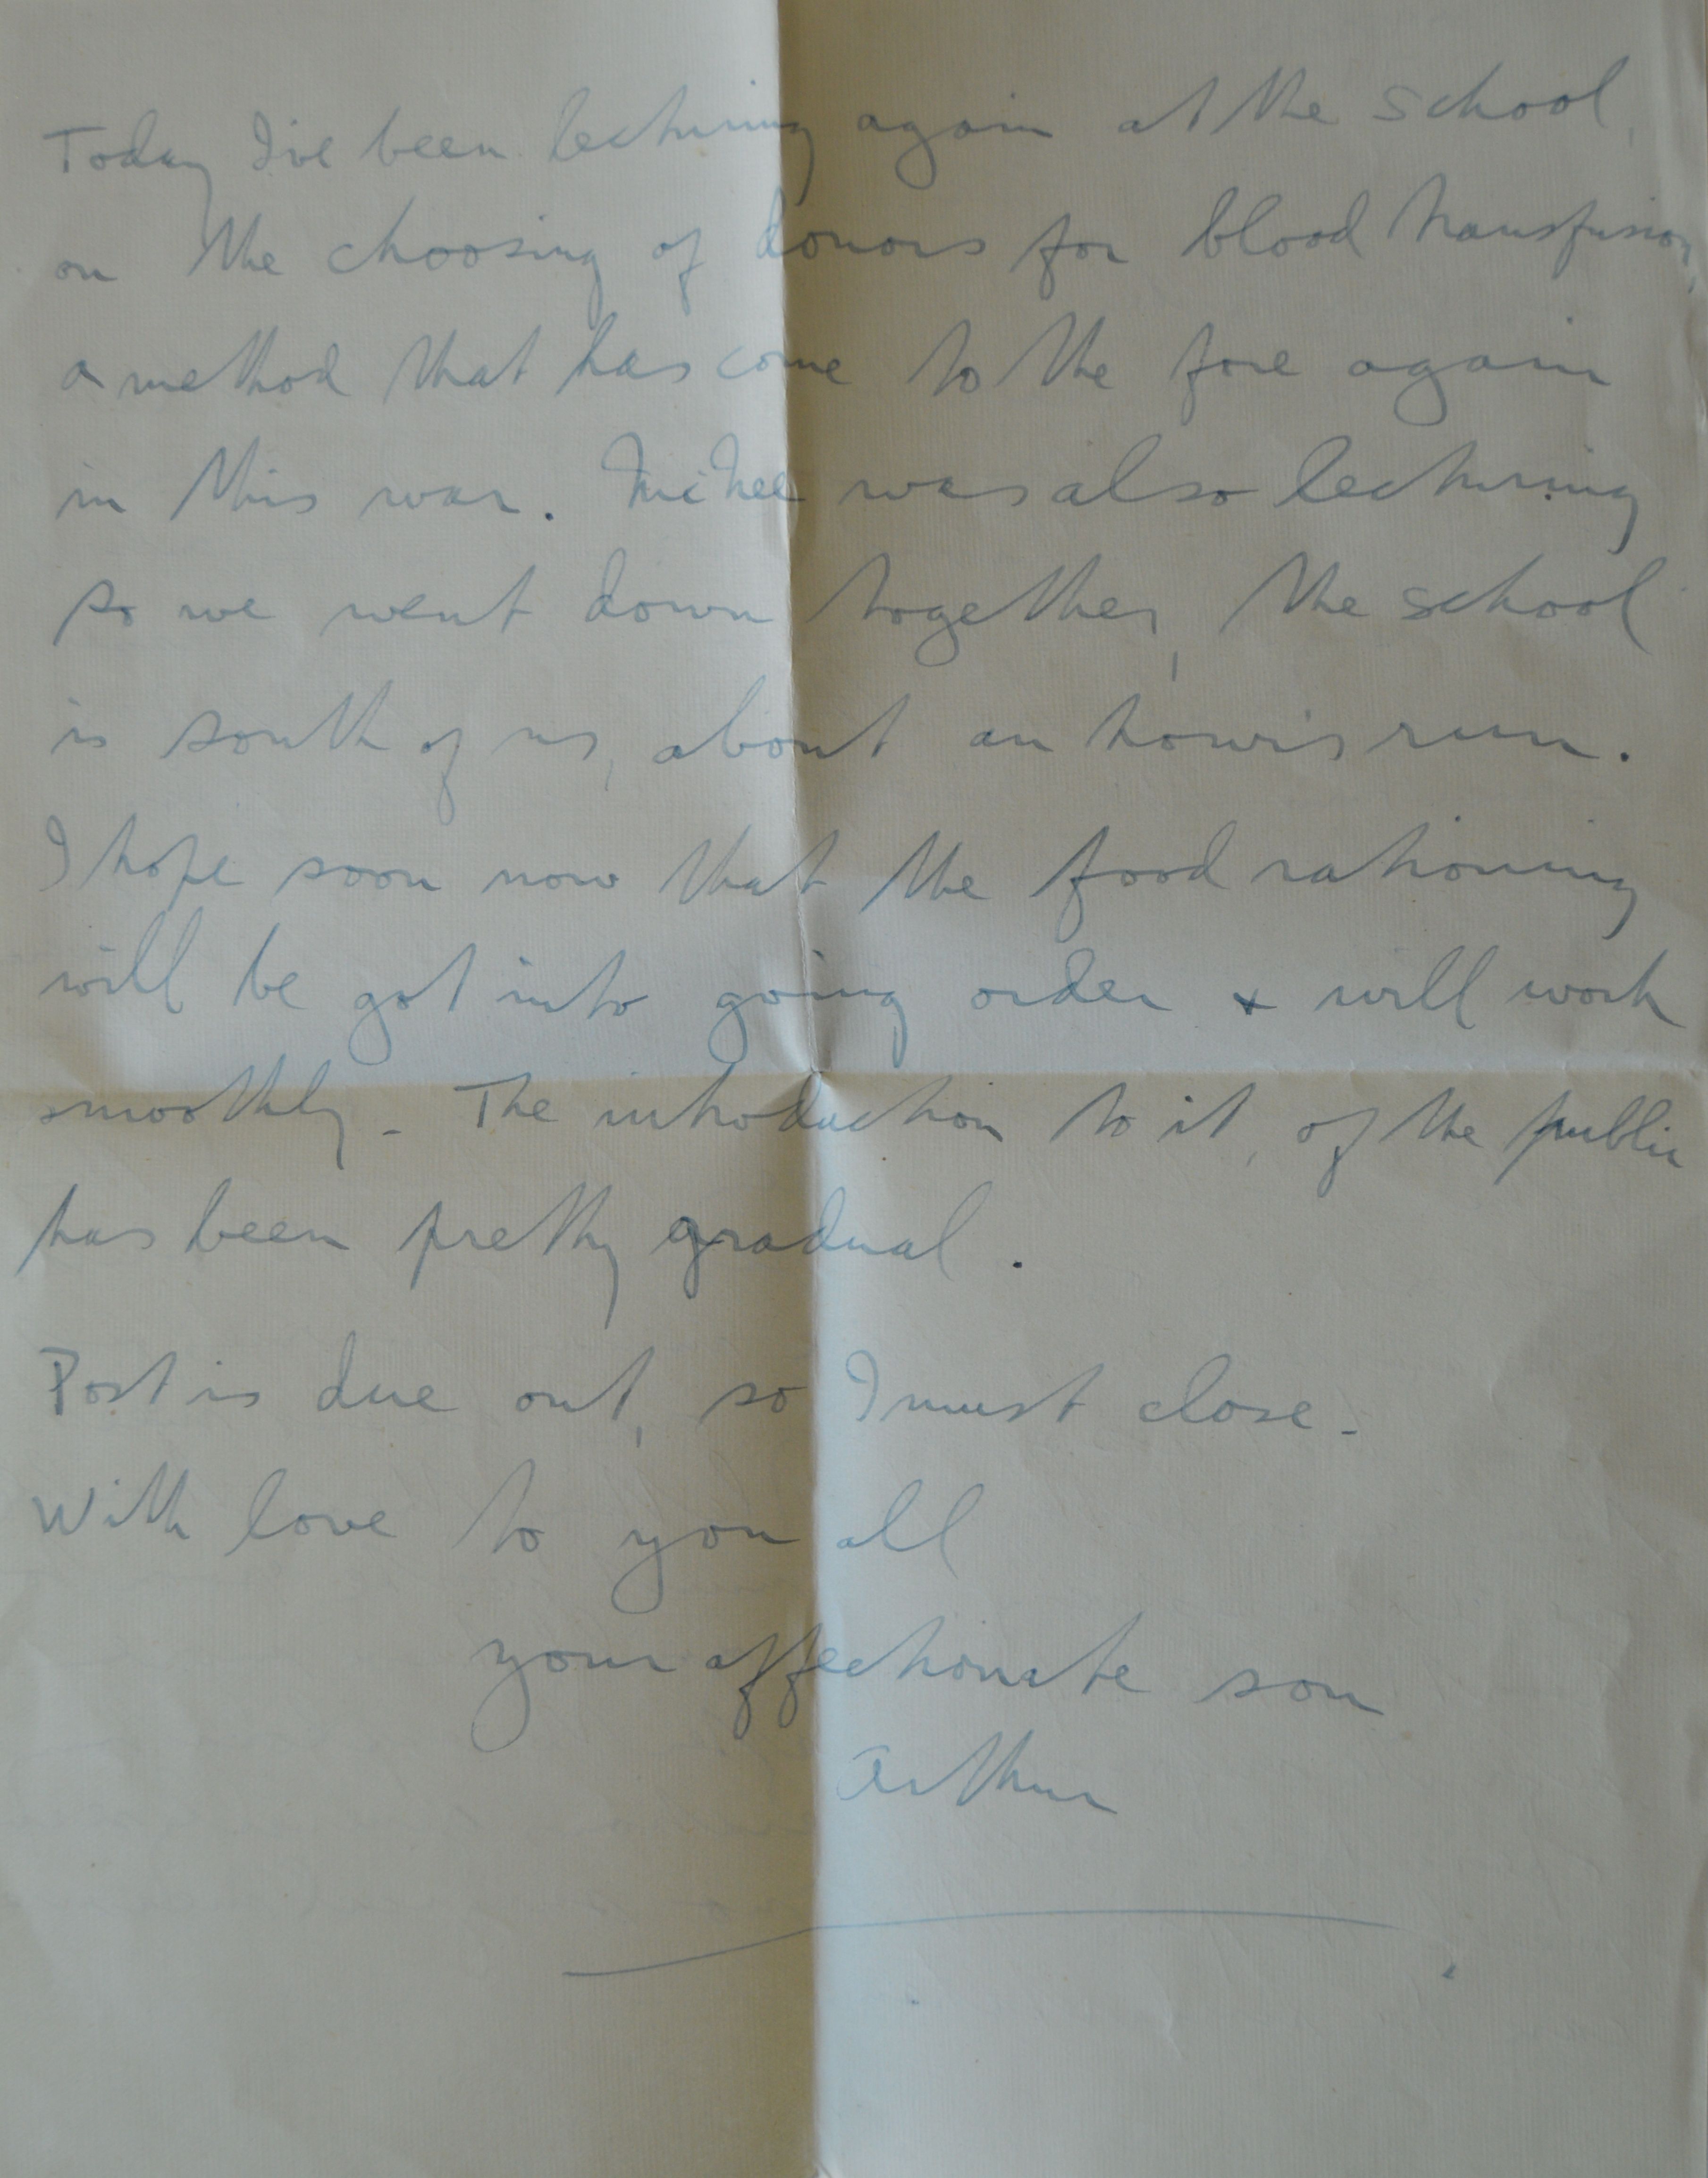 Today I've been lecturing again at the school,
on the choosing of donors for blood transfusion,
a method that has come to the fore again
in this war. was also lecturing
so we went down together, the school
is south of us, about an hour's run.
I hope soon now that the food rationing
will be got into going order & will work
smoothly - The introduction to it, of the public
has been pretty gradual.
Post is due out, so I must close -
With love to you all
your affectionate son
Arthur